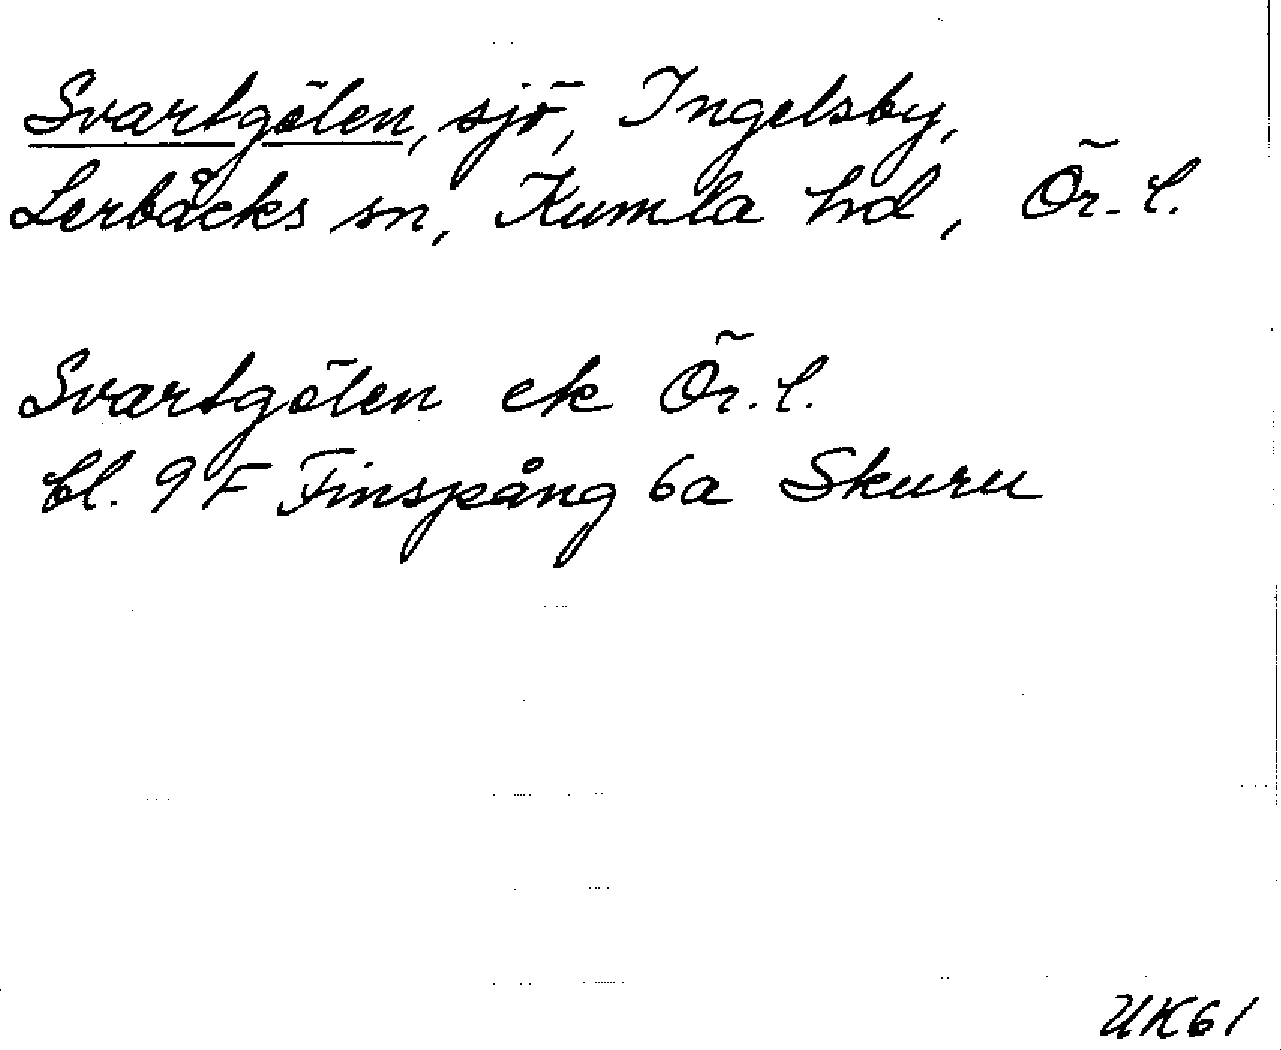 Svartgölen, sjö, Ingelsby,
Lerbäcks sn, Kumla hd, Ör. l.
Svartgölen ek Ör. l.
bl. 9 F Finspång 6a Skuru
UK61